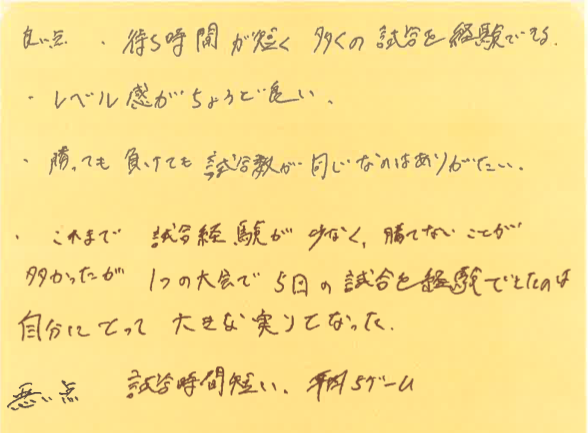 良い点 ・待ち時間が短く 多くの試合を経験できる.
・レベル感がちょうど良い.
・勝っても 負けても 試合数が同じなのはありがたい.
・これまで 試合経験が少なく, 勝てないことが
多かったが 1つの大会で 5回の試合を経験できたのは
自分にとって 大きな実りとなった.
悪い点 試合時間短い. 5ゲーム